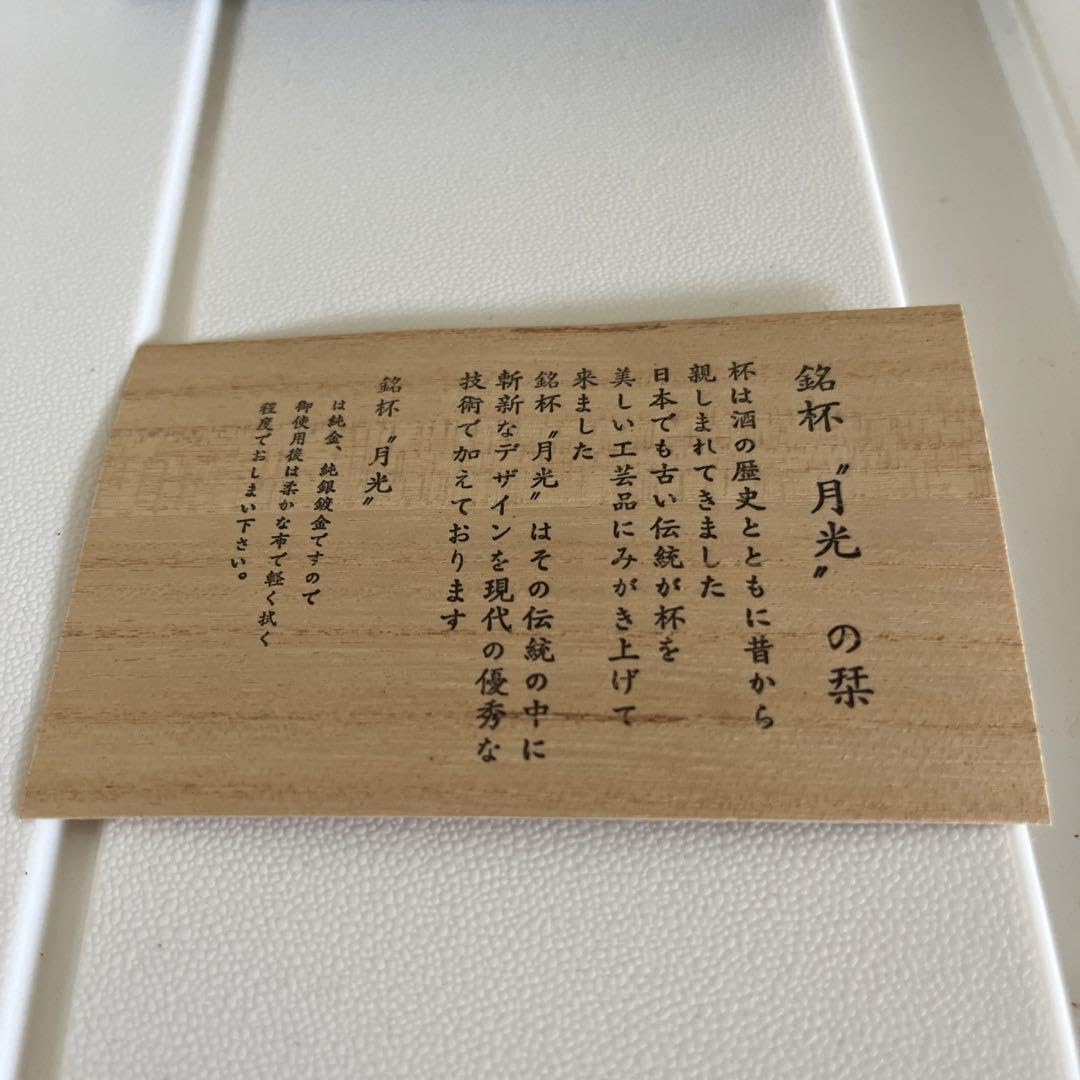 銘杯〝月光〟の栞
杯は酒の歴史とともに昔から
親しまれてきました
日本でも古い伝統が杯を
美しい工芸品にみがき上げて
来ました
銘杯〝月光〟はその伝統の中に
斬新なデザインを現代の優秀な
技術で加えております
銘杯〝月光〟
は純金、純銀鍍金ですので
御使用後は柔かな布で軽く拭く
程度でおしまい下さい。